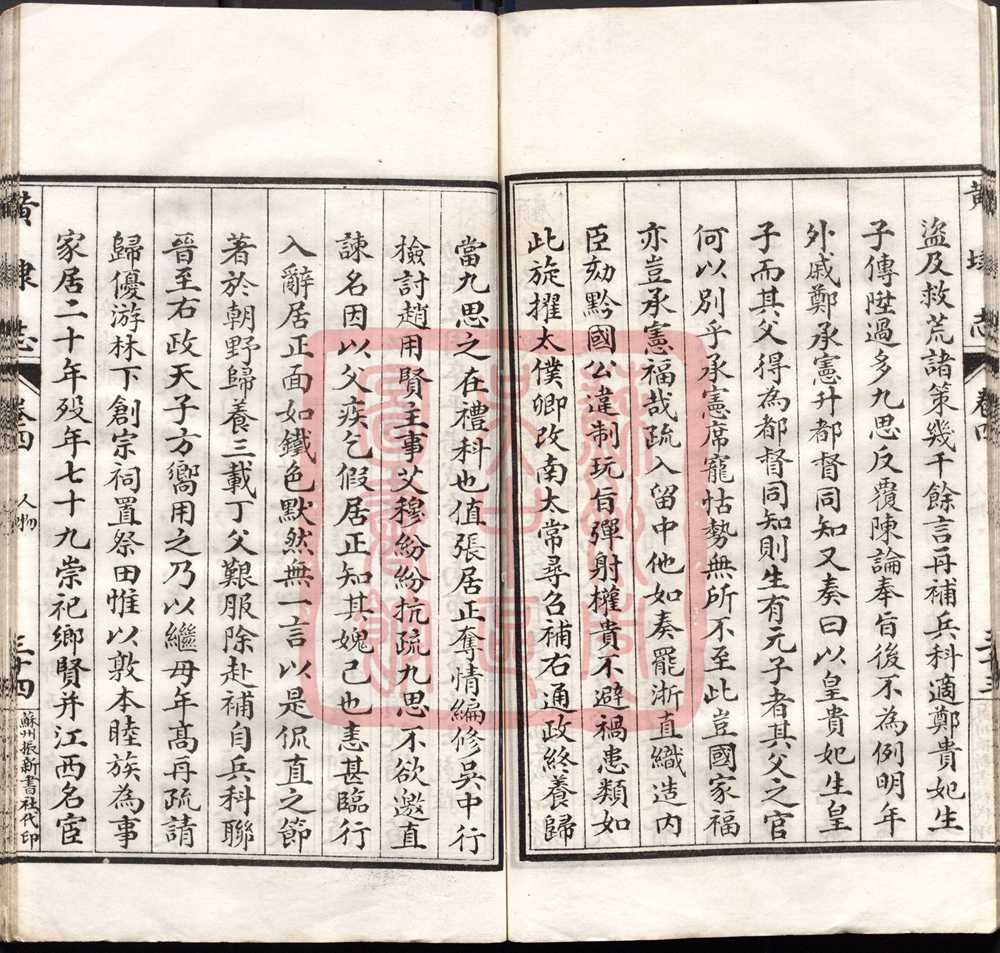 盜及救荒諸策幾千餘言再補兵科適鄭貴妃生
子傳陞過多九思反覆陳論奉旨後不為例明年
外戚鄭承憲升都督同知又奏曰以皇貴妃生皇
子而其父得為都督同知則生有元子者其父之官
何以別乎承憲席寵怙勢無所不至此豈國家福
亦豈承憲福哉疏入留中他如奏罷浙直織造內
臣劾黔國公違制玩旨彈射權貴不避禍患類如
此旋擢太僕卿改南太常尋召補右通政終養歸
當九思之在禮科也值張居正奪情編修吳中行
檢討趙用賢主事艾穆紛紛抗疏九思不欲邀直
諫名因以父疾乞假居正知其媿己也恚甚臨行
入辭居正面如鐵色默然無一言以是侃直之節
著於朝野歸養三載丁父艱服除赴補自兵科聯
晉至右政天子方嚮用之乃以繼母年高再疏請
歸優游林下創宗祠置祭田惟以敦本睦族為事
家居二十年歿年七十九崇祀鄉賢并江西名宦
黃埭志
卷四
人物
三十四
蘇州振新書社代印